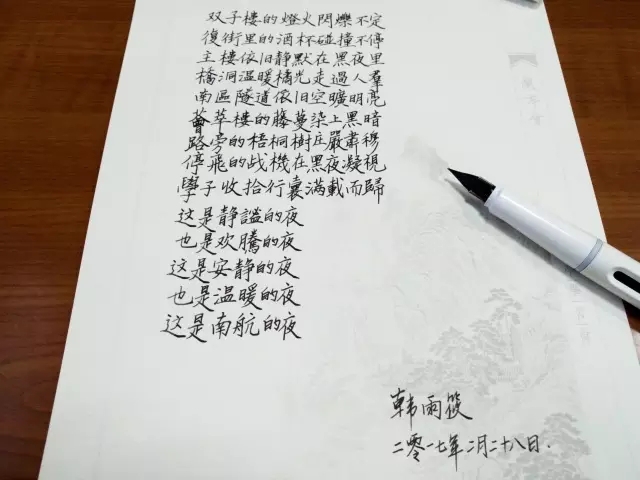 双子楼的燈火閃爍不定
復街里的酒杯碰撞不停
主楼依旧静默在黑夜里
橋洞温暖橘光走過人羣
南區隧道依旧空曠明亮
薈萃樓的藤蔓染上黑暗
路旁的梧桐樹庄嚴肅穆
停飛的战機在黑夜凝視
學子收拾行囊満載而歸
这是静謐的夜
也是欢騰的夜
这是安静的夜
也是温暖的夜
这是南航的夜
韩雨筱
二零一七年二月二十八日.